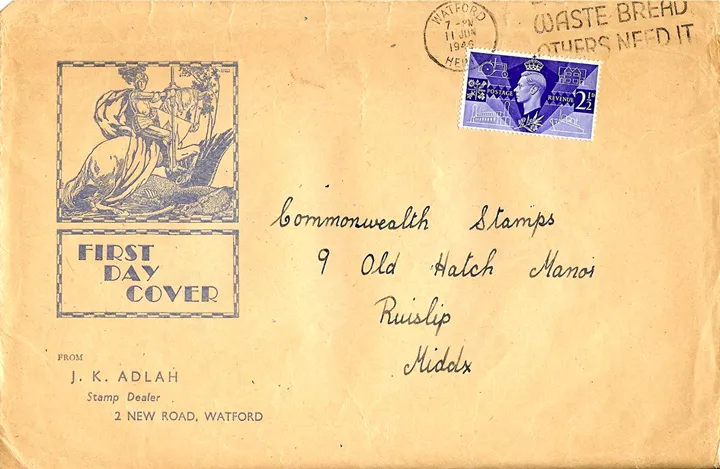 WATFORD
7 - PM
11 JUN
1946
WASTE BREAD
OTHERS NEED IT
POSTAGE
REVENUE
2½D
Commonwealth Stamps
9 Old Hatch Manor
Ruislip
Middx
FIRST
DAY
COVER
FROM
J. K. ADLAH
Stamp Dealer
2 NEW ROAD, WATFORD